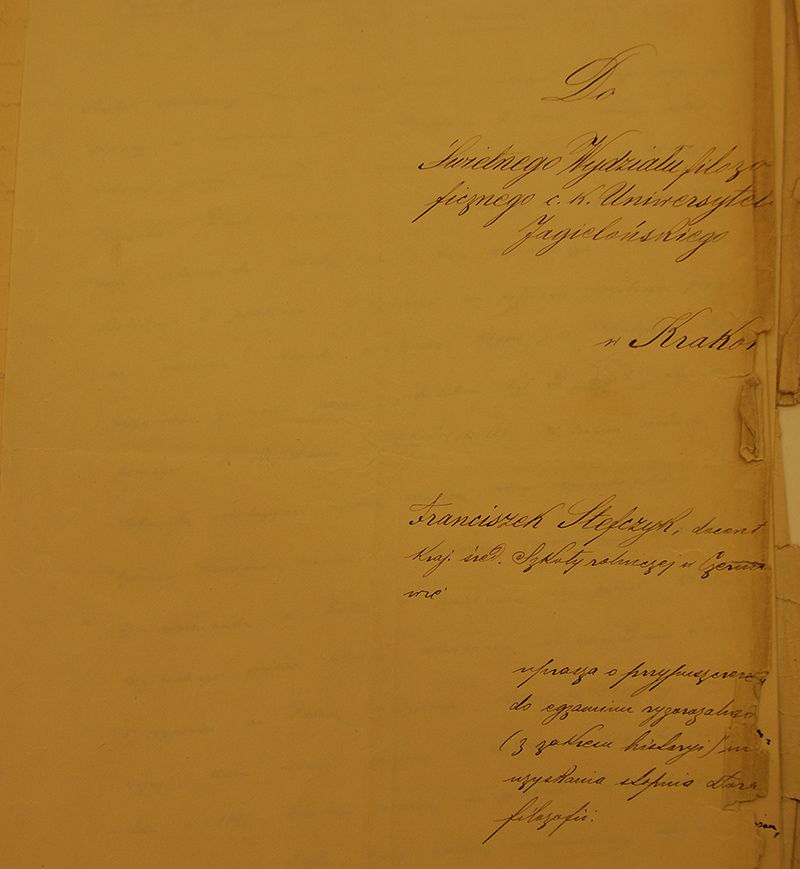 Do
Świetnego Wydziału filozo
ficznego c. k. Uniwersytet
Jagielońskiego
w Krakow
Franciszek Stefczyk, docent
kraj. śred. Szkoły rolniczej w Czernicho
wie
uprasza o przypuszczenie
do egzaminu rygorozalnego
(z zakresu historyi) w
uzyskania stopnia dtora
filozofii.